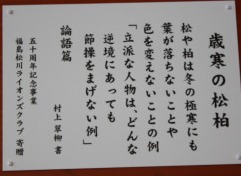 歳寒の松柏
松や柏は冬の極寒にも
葉が落ちないことや
色を変えないことの例
「立派な人物は、どんな
逆境にあっても
節操をまげない例」
論語篇
村上翠柳 書
五十周年記念事業
福島松川ライオンズクラブ 寄贈